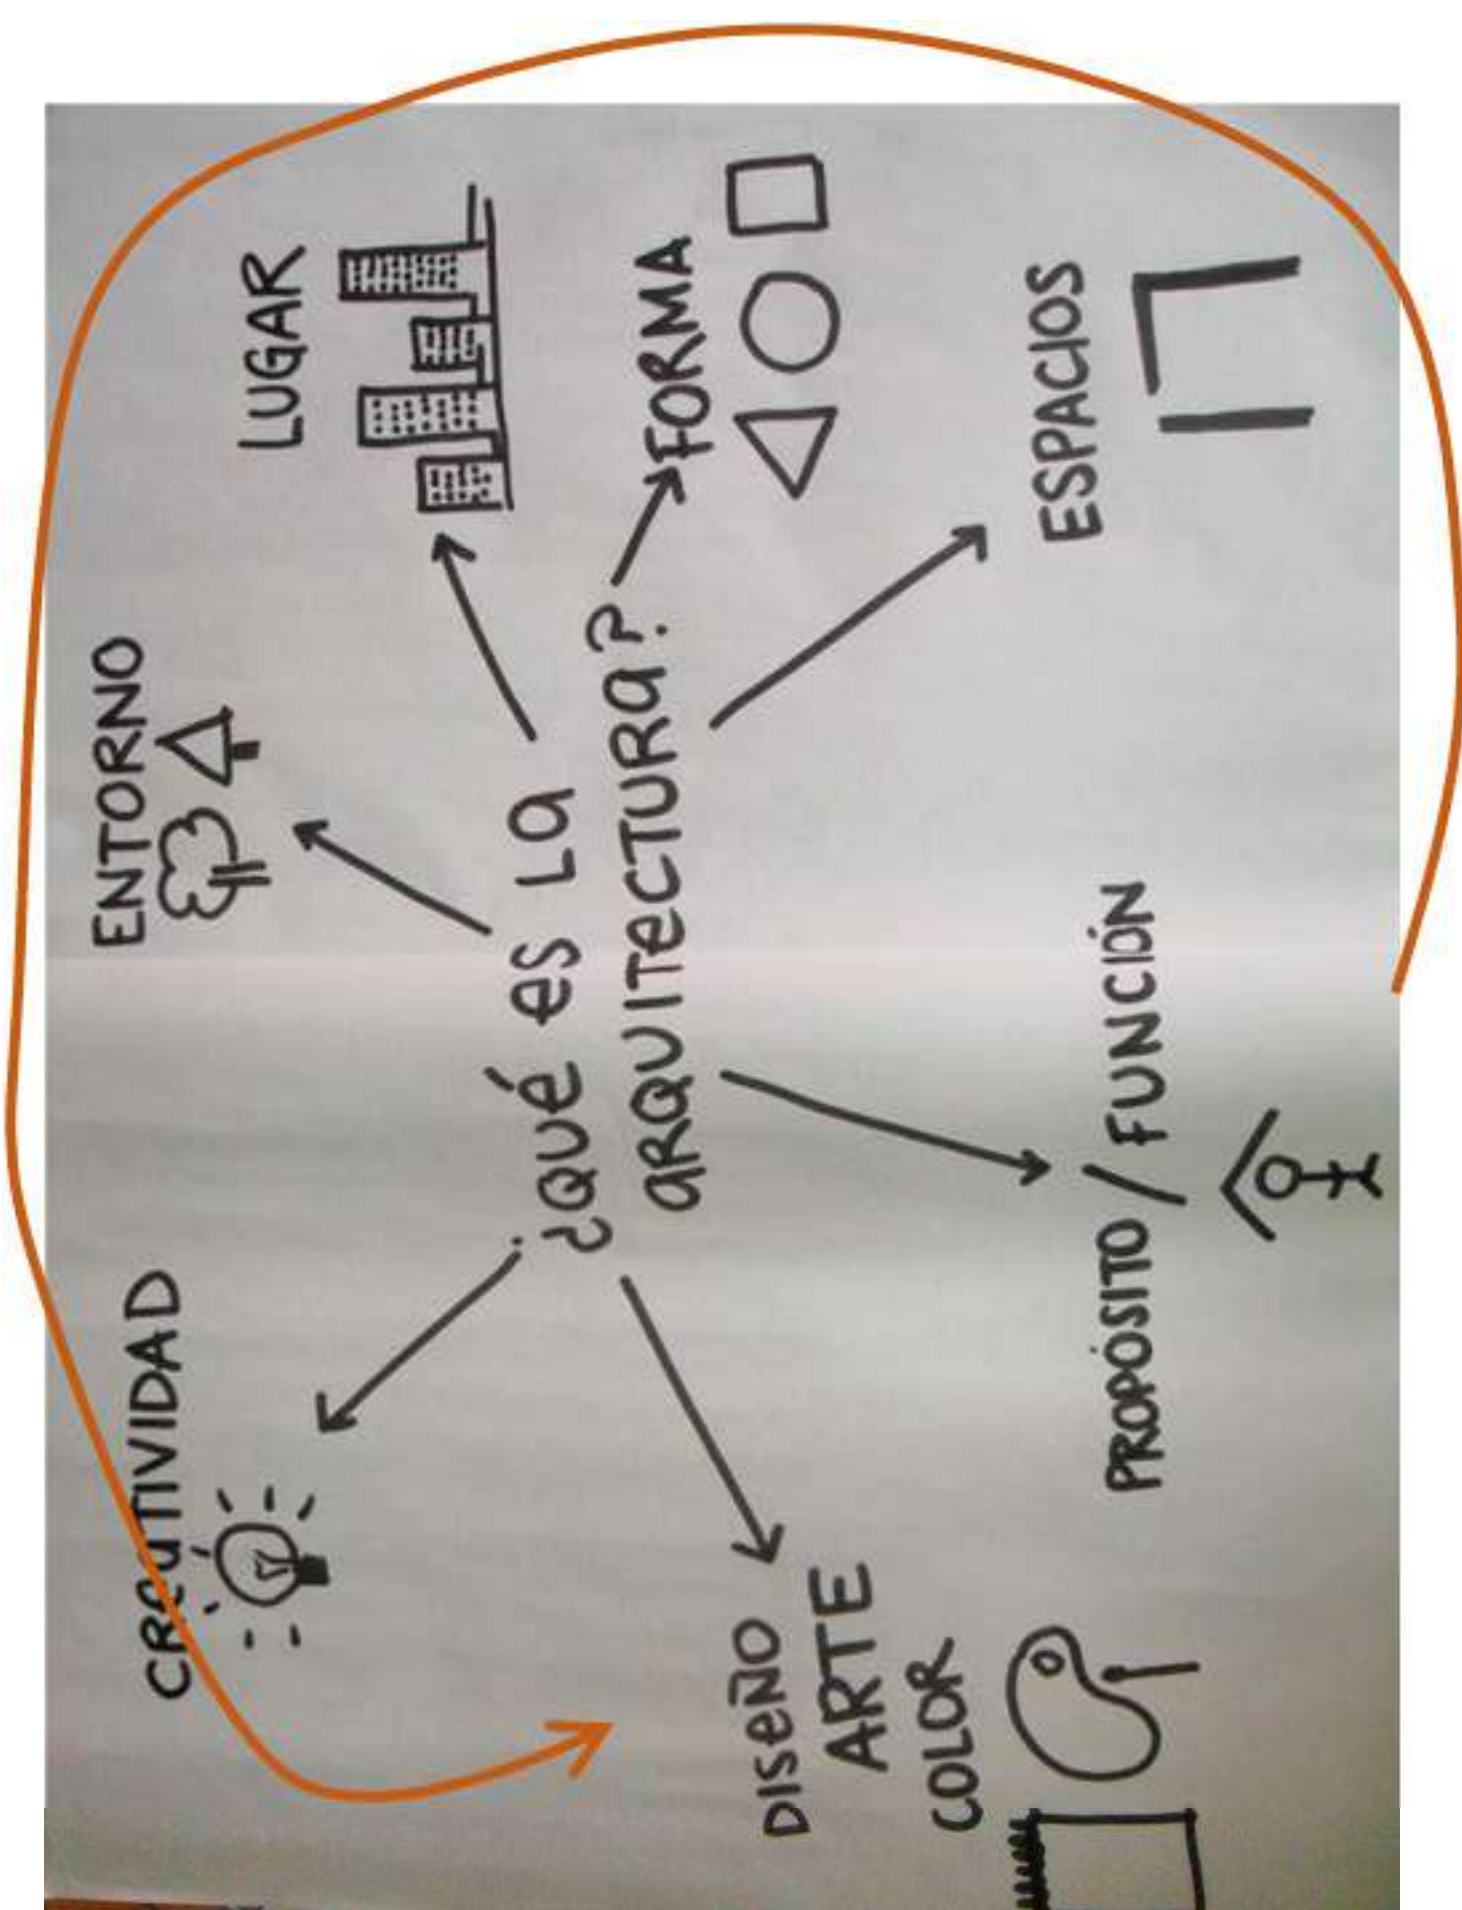 ¿QUÉ ES LA
ARQUITECTURA?
CREATIVIDAD
ENTORNO
LUGAR
FORMA
ESPACIOS
PROPÓSITO / FUNCIÓN
DISEÑO
ARTE
COLOR